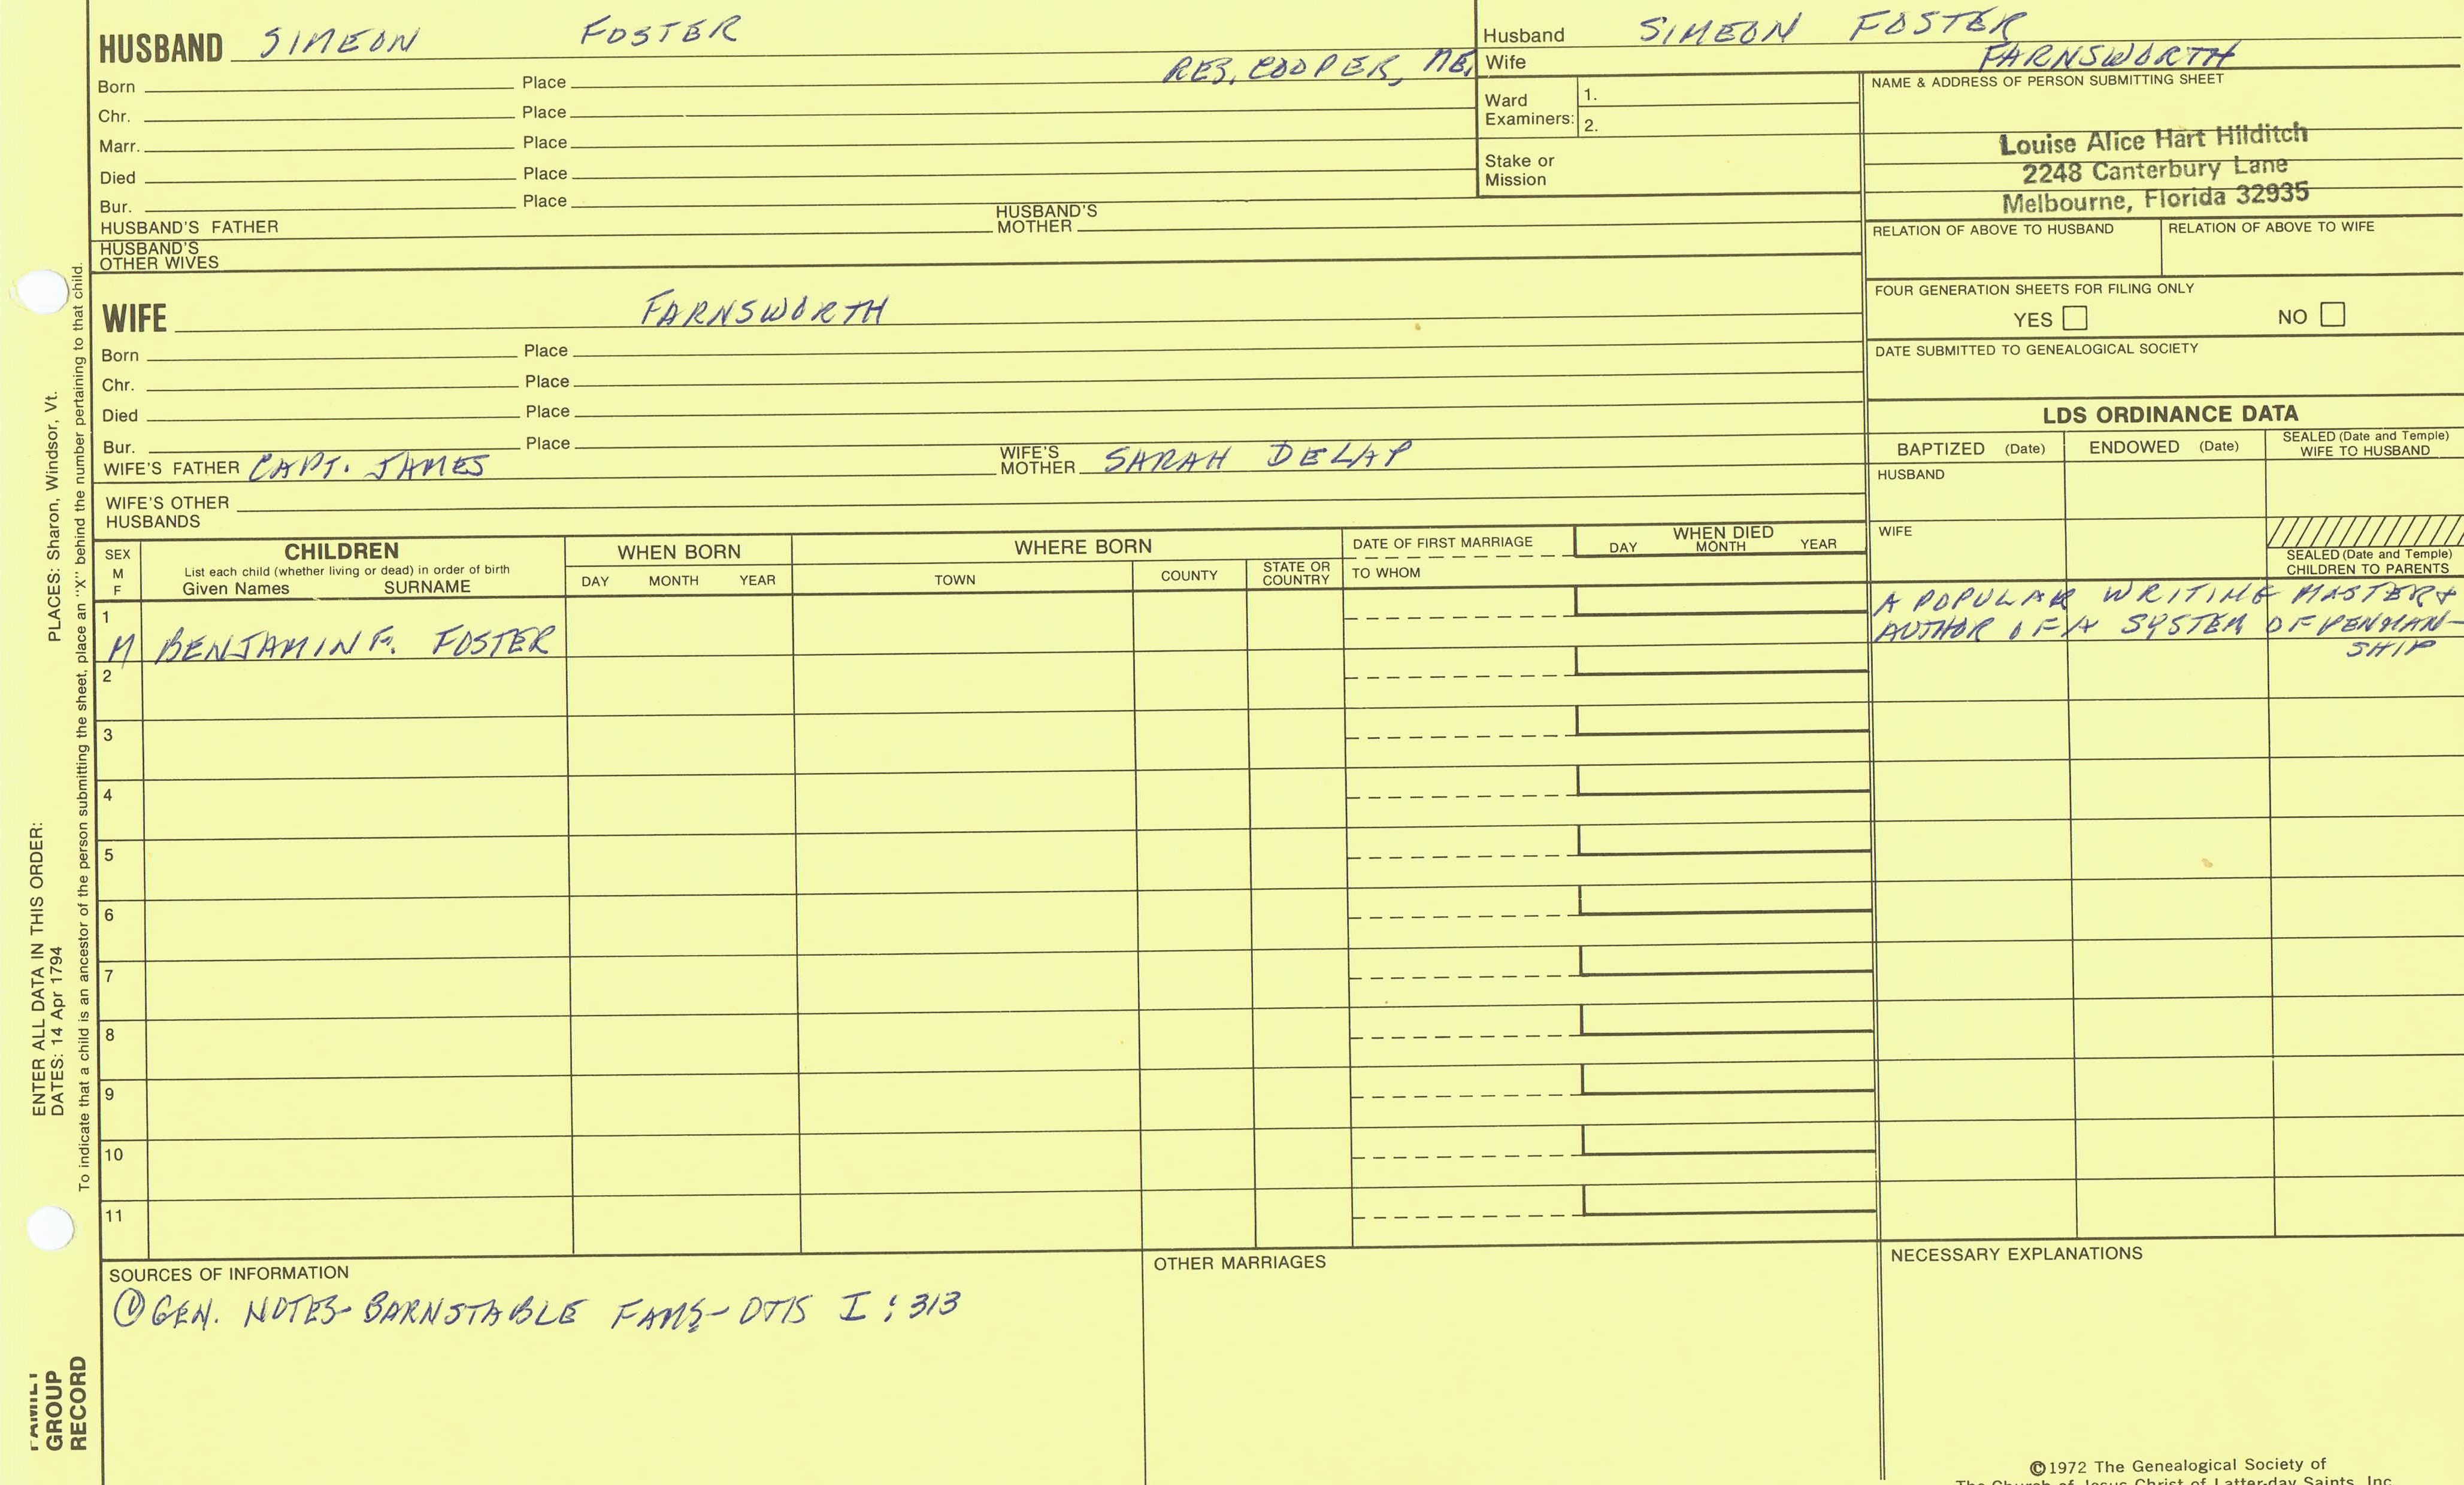 HUSBAND SIMEON FOSTER
RES. COOPER, ME.
Born Place
Chr. Place
Marr. Place
Died Place
Bur. Place
HUSBAND'S FATHER HUSBAND'S MOTHER
HUSBAND'S OTHER WIVES
Husband SIMEON FOSTER
Wife FARNSWORTH
Ward Examiners: 1.
2.
Stake or Mission
NAME & ADDRESS OF PERSON SUBMITTING SHEET
Louise Alice Hart Hilditch
2248 Canterbury Lane
Melbourne, Florida 32935
RELATION OF ABOVE TO HUSBAND RELATION OF ABOVE TO WIFE
FOUR GENERATION SHEETS FOR FILING ONLY
YES NO
DATE SUBMITTED TO GENEALOGICAL SOCIETY
WIFE FARNSWORTH
Born Place
Chr. Place
Died Place
Bur. Place
WIFE'S FATHER CAPT. JAMES WIFE'S MOTHER SARAH DELAP
WIFE'S OTHER HUSBANDS
LDS ORDINANCE DATA
BAPTIZED (Date) ENDOWED (Date) SEALED (Date and Temple) WIFE TO HUSBAND
HUSBAND
WIFE
SEALED (Date and Temple) CHILDREN TO PARENTS
SEX M F
CHILDREN
List each child (whether living or dead) in order of birth
Given Names SURNAME
WHEN BORN
DAY MONTH YEAR
WHERE BORN
TOWN COUNTY STATE OR COUNTRY
DATE OF FIRST MARRIAGE
TO WHOM
WHEN DIED
DAY MONTH YEAR
1
M BENJAMIN F. FOSTER
A POPULAR WRITING MASTER &
AUTHOR OF A SYSTEM OF PENMAN-
SHIP
2
3
4
5
6
7
8
9
10
11
SOURCES OF INFORMATION
① GEN. NOTES- BARNSTABLE FAMS- OTIS I : 313
OTHER MARRIAGES
NECESSARY EXPLANATIONS
©1972 The Genealogical Society of
The Church of Jesus Christ of Latter-day Saints, Inc.
ENTER ALL DATA IN THIS ORDER:
DATES: 14 Apr 1794 PLACES: Sharon, Windsor, Vt.
To indicate that a child is an ancestor of the person submitting the sheet, place an "X" behind the number pertaining to that child.
FAMILY
GROUP
RECORD